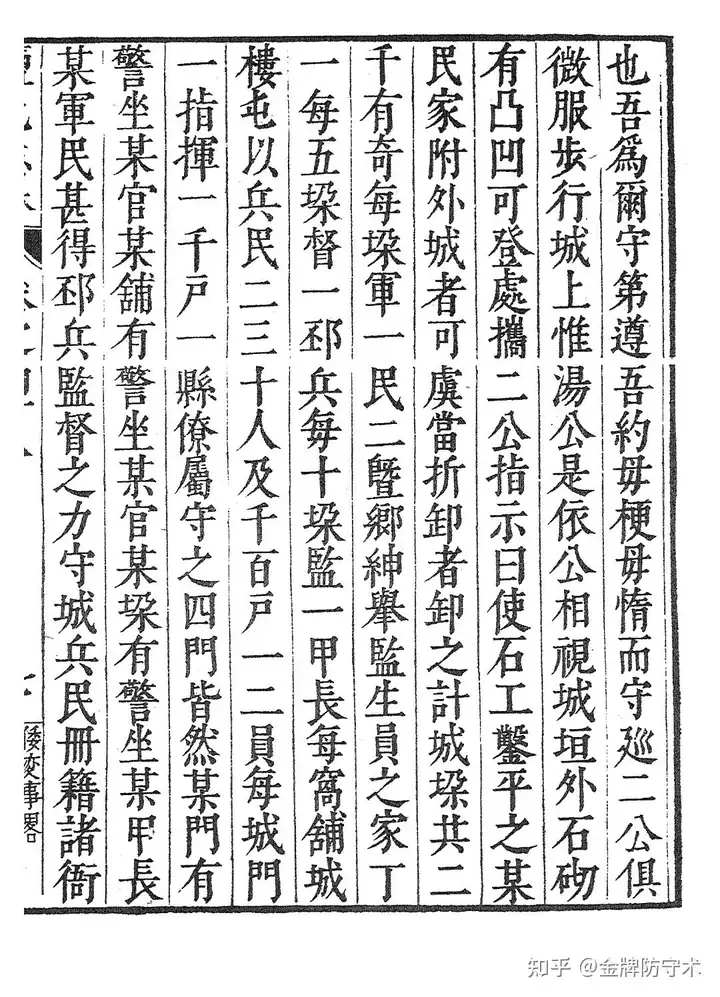 也吾爲爾守第遵吾約毋梗毋惰而守廵二公俱
微服步行城上惟湯公是依公相視城垣外石砌
有凸凹可登處攜二公指示曰使石工鑿平之某
民家附外城者可虞當折卸者卸之計城垜共二
千有奇每垜軍一民二曁鄉紳舉監生員之家丁
一每五垜督一邳兵每十垜監一甲長每窩舖城
樓屯以兵民二三十人及千百戶一二員每城門
一指揮一千戶一縣僚屬守之四門皆然某門有
警坐某官某舖有警坐某官某垜有警坐某甲長
某軍民甚得邳兵監督之力守城兵民冊籍諸衙
倭変事畧
知乎 @金牌防守术